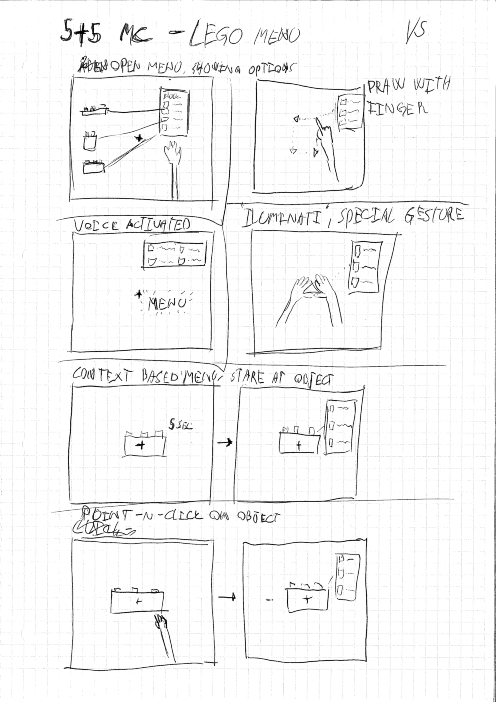 5+5 MC - LEGO MENU
1/5
OPEN MENU, SHOWING OPTIONS
DRAW WITH
FINGER
VOICE ACTIVATED
"ILUMENATI", SPECIAL GESTURE
MENU
CONTEXT BASED MENU, STARE AT OBJECT
5 SEC
POINT-N-CLICK ON OBJECT